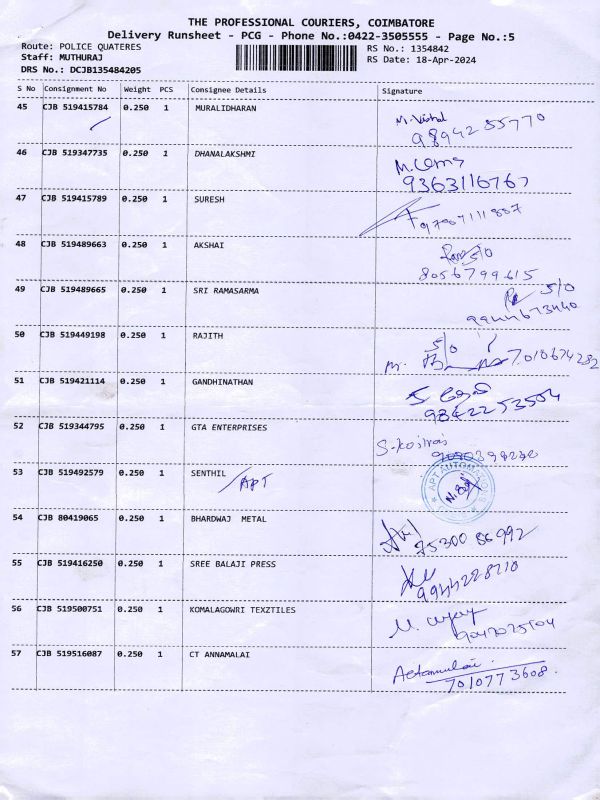 THE PROFESSIONAL COURIERS, COIMBATORE
Delivery Runsheet - PCG - Phone No.:0422-3505555 - Page No.:5
Route: POLICE QUATERES RS No.: 1354842
Staff: MUTHURAJ RS Date: 18-Apr-2024
DRS No.: DCJB135484205
S No Consignment No Weight PCS Consignee Details Signature
45 CJB 519415784 0.250 1 MURALIDHARAN M. Vishal
9894255770
46 CJB 519347735 0.250 1 DHANALAKSHMI M. Uma
9363116767
47 CJB 519415789 0.250 1 SURESH 9787111887
48 CJB 519489663 0.250 1 AKSHAI S/O
8056799615
49 CJB 519489665 0.250 1 SRI RAMASARMA S/O
9944673440
50 CJB 519449198 0.250 1 RAJITH S/o
7010674282
51 CJB 519421114 0.250 1 GANDHINATHAN
9842253504
52 CJB 519344795 0.250 1 GTA ENTERPRISES
53 CJB 519492579 0.250 1 SENTHIL APT AUTOMA
/APT
54 CJB 80419065 0.250 1 BHARDWAJ METAL
7530086992
55 CJB 519416250 0.250 1 SREE BALAJI PRESS
9944228210
56 CJB 519500751 0.250 1 KOMALAGOWRI TEXZTILES
57 CJB 519516087 0.250 1 CT ANNAMALAI
7010773608.